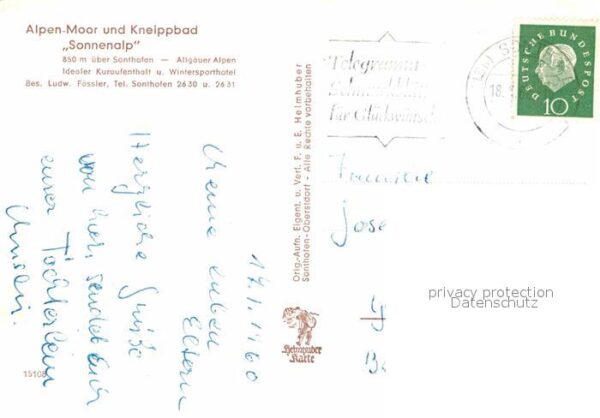 Alpen-Moor und Kneippbad
„Sonnenalp"
850 m über Sonthofen — Allgäuer Alpen
Idealer Kuraufenthalt u. Wintersporthotel
Bes. Ludw. Fössler, Tel. Sonthofen 2630 u. 2631
17.1.1960
Meine lieben
Eltern
Herzliche Grüße
von hier, sendet Euch
euer Töchterlein
15108
Orig.-Aufn. Eigent. u. Verl. F. u. E. Heimhuber
Sonthofen-Oberstdorf - Alle Rechte vorbehalten
Heimhuber
Karte
Telegramme
Schmuckblatt
für Glückwünsche
18.
DEUTSCHE BUNDESPOST
10
Familie
Jose
privacy protection
Datenschutz